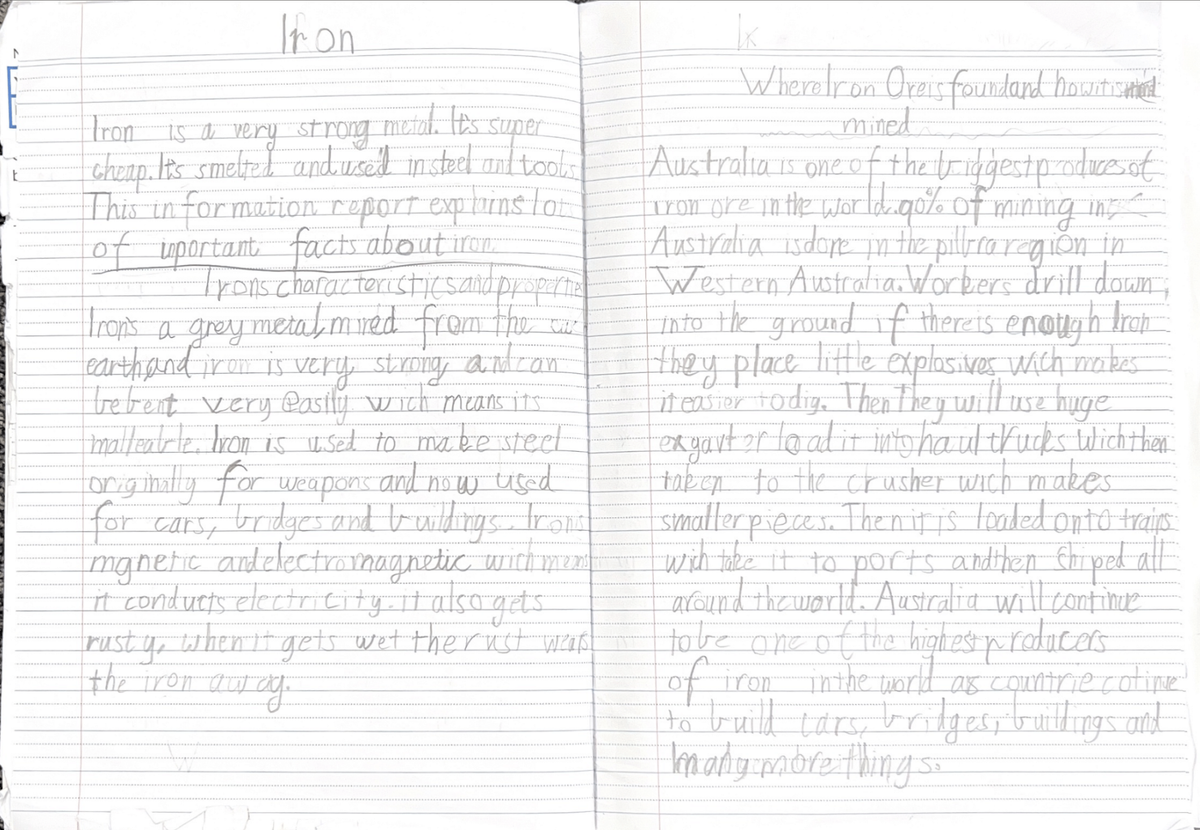 Iron
Iron is a very strong metal. It's super
cheap. It's smelted and used in steel and tools
This information report explains lot
of inportant facts about iron
Irons characteristics and propertie
Iron's a grey metal mired from the
earth and iron is very strong and can
be bent very easily wich means its
malleable. Iron is used to make steel
originally for weapons and now used
for cars, bridges and buildings. Irons
mgnetic and electromagnetic wich mens
it conducts electricity. it also gets
rusty, when it gets wet the rust wears
the iron away.
Where Iron Ore is found and how it is
mined
Australia is one of the briggest produces of
iron ore in the world. 90% of mining in
Australia is done in the pilbra region in
Western Australia. Workers drill down
into the ground if there is enough Iron
they place little explosives wich makes
it easier to dig. Then They will use huge
exgavter load it into haul trucks wich then
taken to the crusher wich makes
smaller pieces. Then it is loaded onto trains
wich take it to ports and then Shiped all
around the world. Australia will continue
to be one of the highest producers
of iron in the world as countrie cotinue
to build cars, bridges, buildings and
many more things.